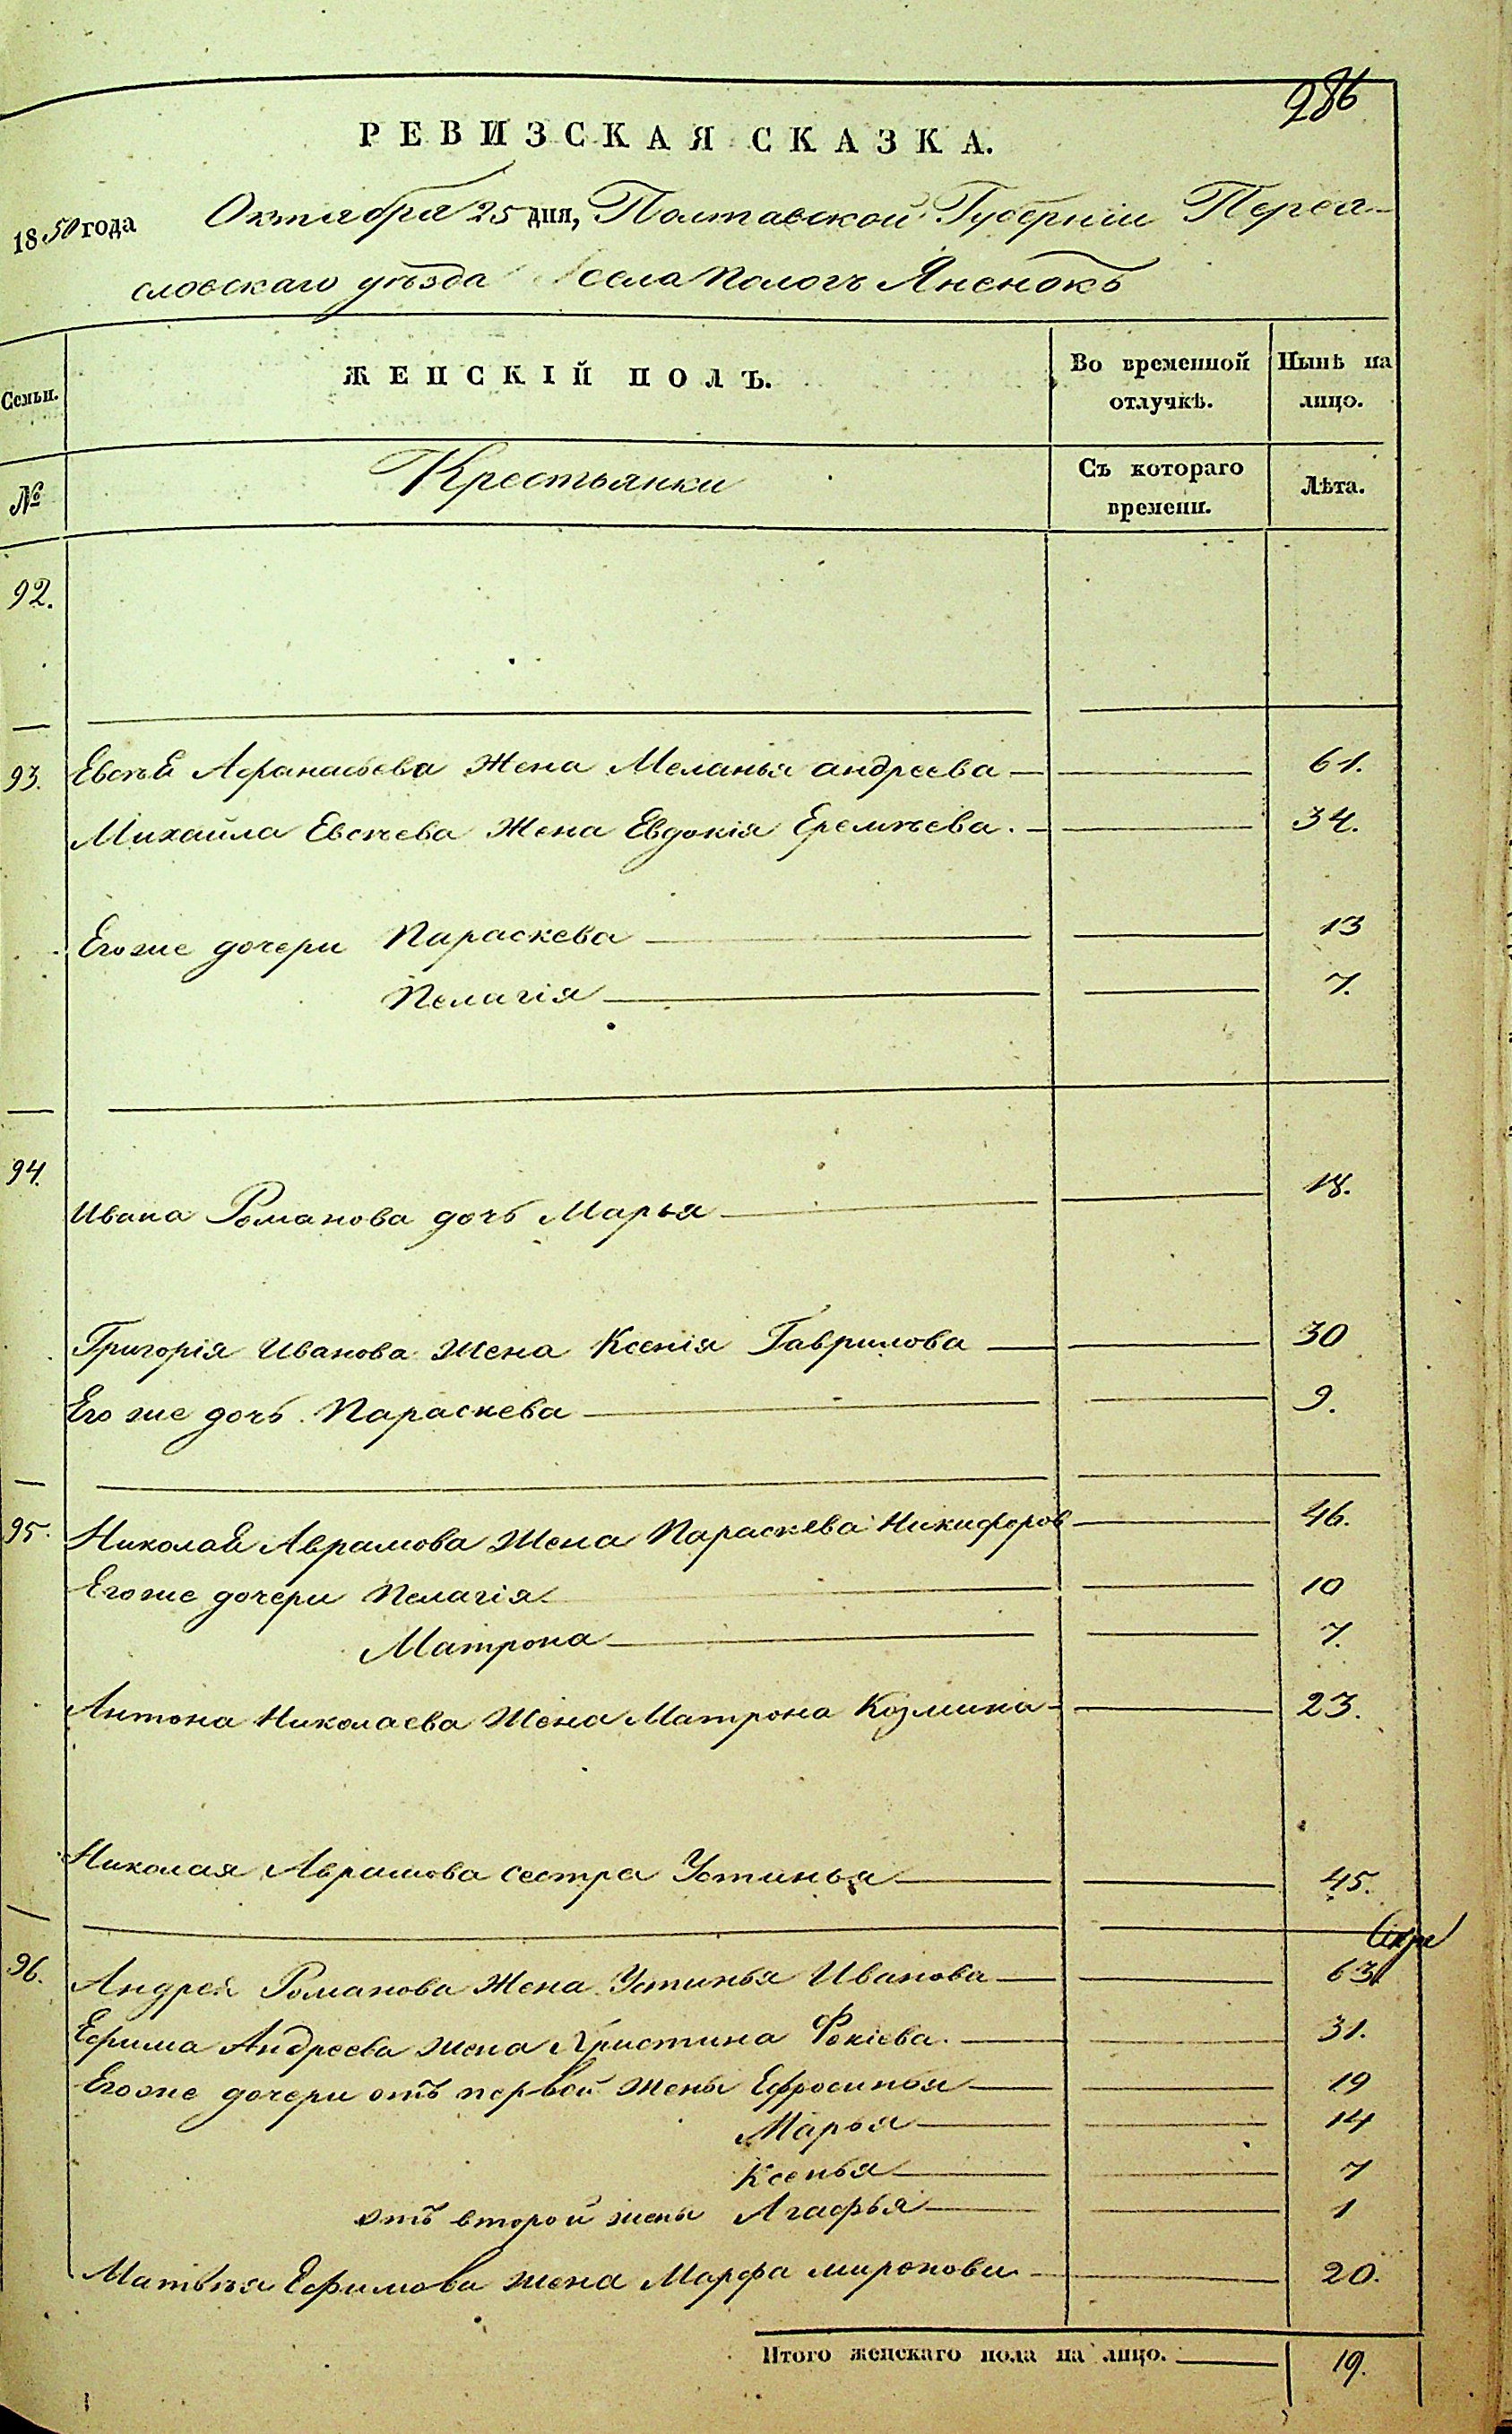 286
РЕВИЗСКАЯ СКАЗКА.
1850 года Октября 25 дня, Полтавской Губерніи Переа-
словскаго уѣзда села Пологъ Яненокъ
Семьи.
ЖЕНСКІЙ ПОЛЪ.
Во временной отлучкѣ.
Нынѣ на лицо.
№
Крестьянки
Съ котораго времени.
Лѣта.
92.
93. Евсѣя Афанасьева Жена Меланья андреева 61.
Михайла Евсѣева Жена Евдокія Еремѣева. 34.
Егоже дочери Параскева 13
Пелагія 7.
94.
Ивана Романова дочь Марья 18.
Григорія Иванова жена Ксенія Гаврилова 30
Его же дочь Параскева 9.
95. Николая Аврамова жена Параскева Никифоров 46.
Егоже дочери Пелагія 10
Матрона 7.
Антона Николаева Жена Матрона Козмина 23.
Николая Аврамова сестра Устинья 45.
96. Андрея Романова Жена Устинья Иванова 63
Ефима Андреева жена Христина Фокіева. 31.
Егоже дочери отъ первой жены Ефросинья 19
Марья 14
Ксенья 7
отъ второй жены Агафья 1
Матвѣя Ефимова жена Марфа миронова 20.
Итого женскаго пола на лицо. 19.